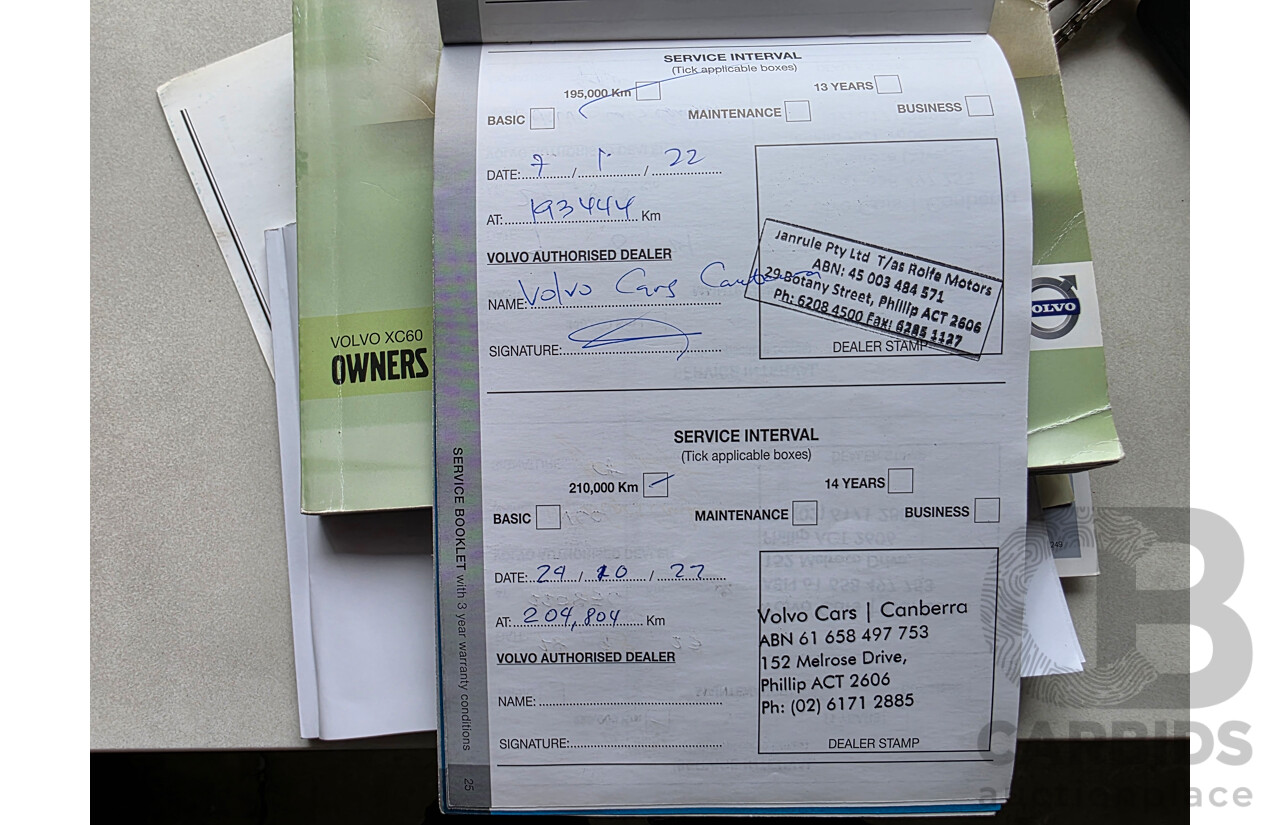 SERVICE INTERVAL
(Tick applicable boxes)
195,000 Km
13 YEARS
BASIC
MAINTENANCE
BUSINESS
DATE: 7 / 1 / 22
AT: 193444 Km
VOLVO AUTHORISED DEALER
NAME: Volvo Cars
SIGNATURE:
Janrule Pty Ltd T/as Rolfe Motors
ABN: 45 003 484 571
29 Botany Street, Phillip ACT 2606
Ph: 6208 4500 Fax: 6285 1127
DEALER STAMP
SERVICE INTERVAL
(Tick applicable boxes)
210,000 Km
14 YEARS
BASIC
MAINTENANCE
BUSINESS
DATE: 24 / 10 / 22
AT: 204,804 Km
VOLVO AUTHORISED DEALER
NAME:
SIGNATURE:
Volvo Cars | Canberra
ABN 61 658 497 753
152 Melrose Drive,
Phillip ACT 2606
Ph: (02) 6171 2885
DEALER STAMP
SERVICE BOOKLET with 3 year warranty conditions
25
VOLVO XC60
OWNERS
VOLVO
249
CB
CARBIDS
auctionplace